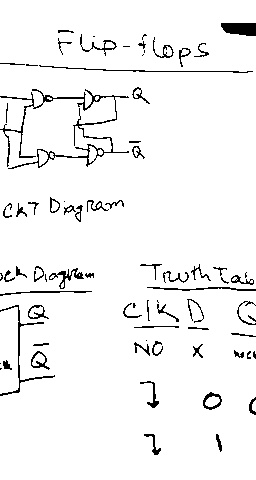 Flip-flops
Q
Q̅
CKT Diagram
ock Diagram
Truth Tab
Q
Q̅
Clk D Q
NO X
0
1